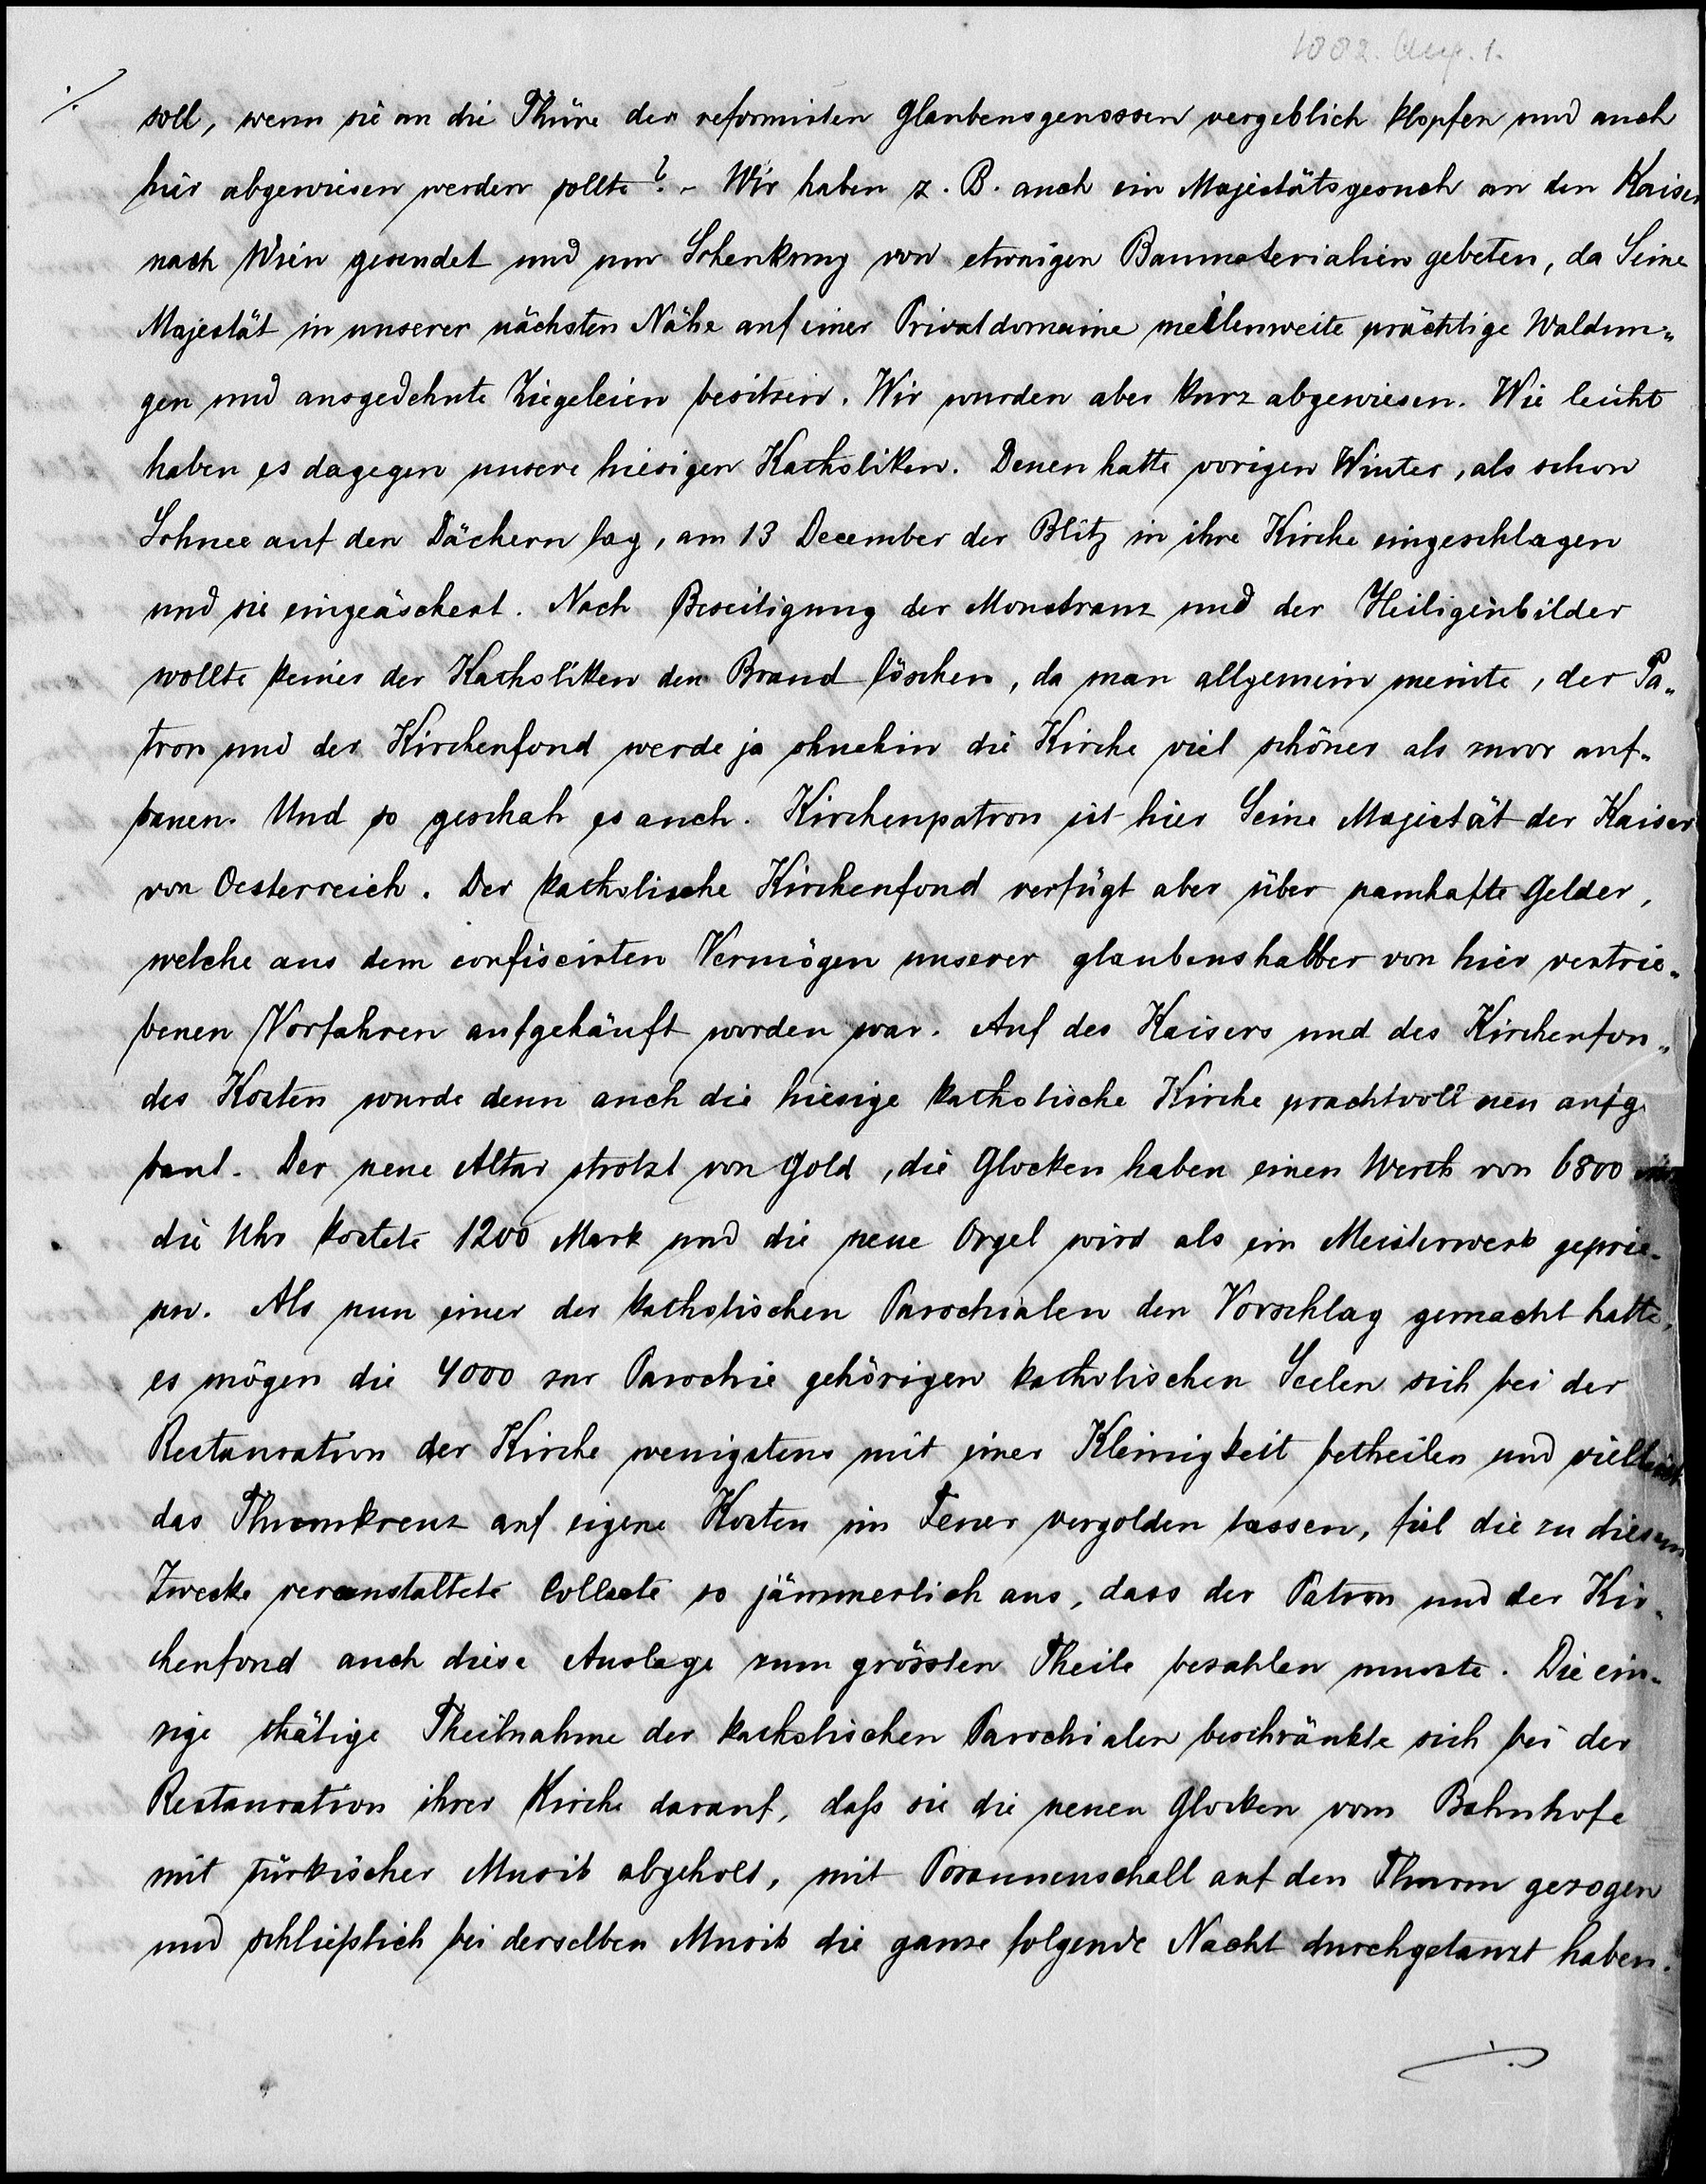 1882. Aug. 1.
./.
soll, wenn sie an die Thüre der reformirten Glaubensgenossen vergeblich klopfen und auch
hier abgewiesen werden sollte? - Wir haben z. B. auch ein Majestätsgesuch an den Kaiser
nach Wien gesendet und um Schenkung von etwaigen Baumaterialien gebeten, da Seine
Majestät in unserer nächsten Nähe auf einer Privatdomaine meilenweite prächtige Waldun„
gen und ausgedehnte Ziegeleien besitzen. Wir wurden aber kurz abgewiesen. Wie leicht
haben es dagegen unsere hiesigen Katholiken. Denen hatte vorigen Winter, als schon
Schnee auf den Dächern lag, am 13 December der Blitz in ihre Kirche eingeschlagen
und sie eingeäschert. Nach Beseitigung der Monstranz und der Heiligenbilder
wollte keiner der Katholiken den Brand löschen, da man allgemein meinte, der Pa„
tron und der Kirchenfond werde ja ohnehin die Kirche viel schöner als zuvor auf„
bauen. Und so geschah es auch. Kirchenpatron ist hier Seine Majestät der Kaiser
von Oesterreich. Der katholische Kirchenfond verfügt aber über namhafte Gelder,
welche aus dem confiscirten Vermögen unserer glaubenshalber von hier vertrie„
benen Vorfahren aufgehäuft worden war. Auf des Kaisers und des Kirchenfon„
des Kosten wurde denn auch die hiesige katholische Kirche prachtvoll neu aufge
baut. Der neue Altar strotzt von Gold, die Glocken haben einen Werth von 6800
die Uhr kostete 1200 Mark und die neue Orgel wird als ein Meisterwerk geprie„
sen. Als nun einer der katholischen Parochialen den Vorschlag gemacht hatte,
es mögen die 4000 zur Parochie gehörigen katholischen Seelen sich bei der
Restauration der Kirche wenigstens mit einer Kleinigkeit betheilen und vielleicht
das Thurmkreuz auf eigene Kosten im Feuer vergolden lassen, fiel die zu diesem
Zwecke veranstaltete Collecte so jämmerlich aus, dass der Patron und der Kir„
chenfond auch diese Auslage zum grössten Theile bezahlen musste. Die ein„
zige thätige Theilnahme der katholischen Parochialen beschränkte sich bei der
Restauration ihrer Kirche darauf, daß sie die neuen Glocken vom Bahnhofe
mit türkischer Musik abgeholt, mit Posaunenschall auf den Thurm gezogen
und schließlich bei derselben Musik die ganze folgende Nacht durchgetanzt haben.
./.